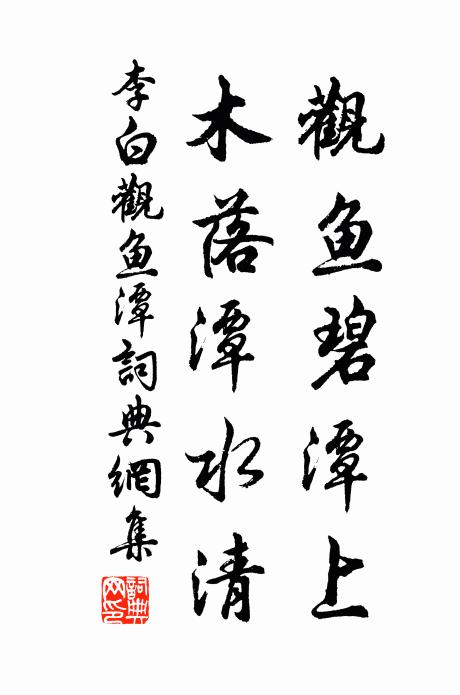 觀鱼碧潭上
木落潭水清
李白觀鱼潭詞典網集
詞典
网印